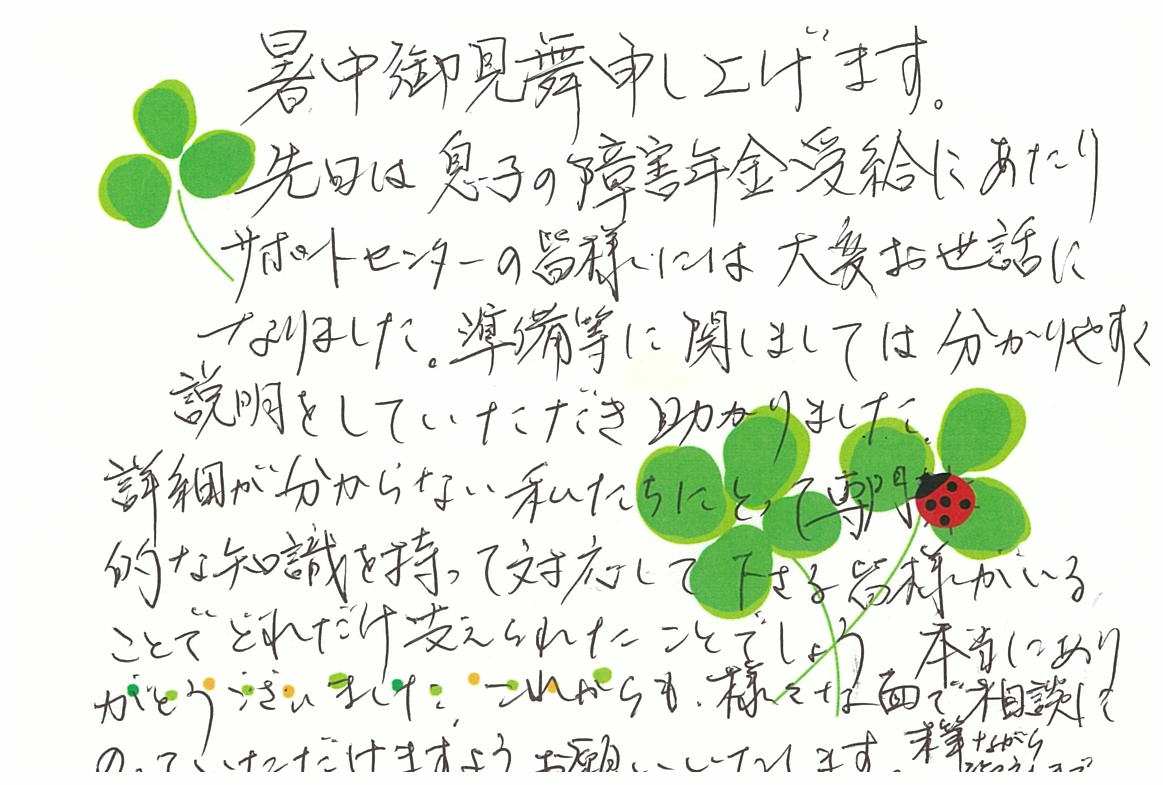 暑中御見舞申し上げます。
先日は息子の障害年金受給にあたり
サポートセンターの皆様には大変お世話に
なりました。準備等に関しましては分かりやすく
説明をしていただき助かりました。
詳細が分からない私たちにとって専門
的な知識を持って対応して下さる皆様がいる
ことでどれだけ支えられたことでしょう 本当にあり
がとうございました。これからも、様々な面で相談に
のっていただけますようお願いいたします。